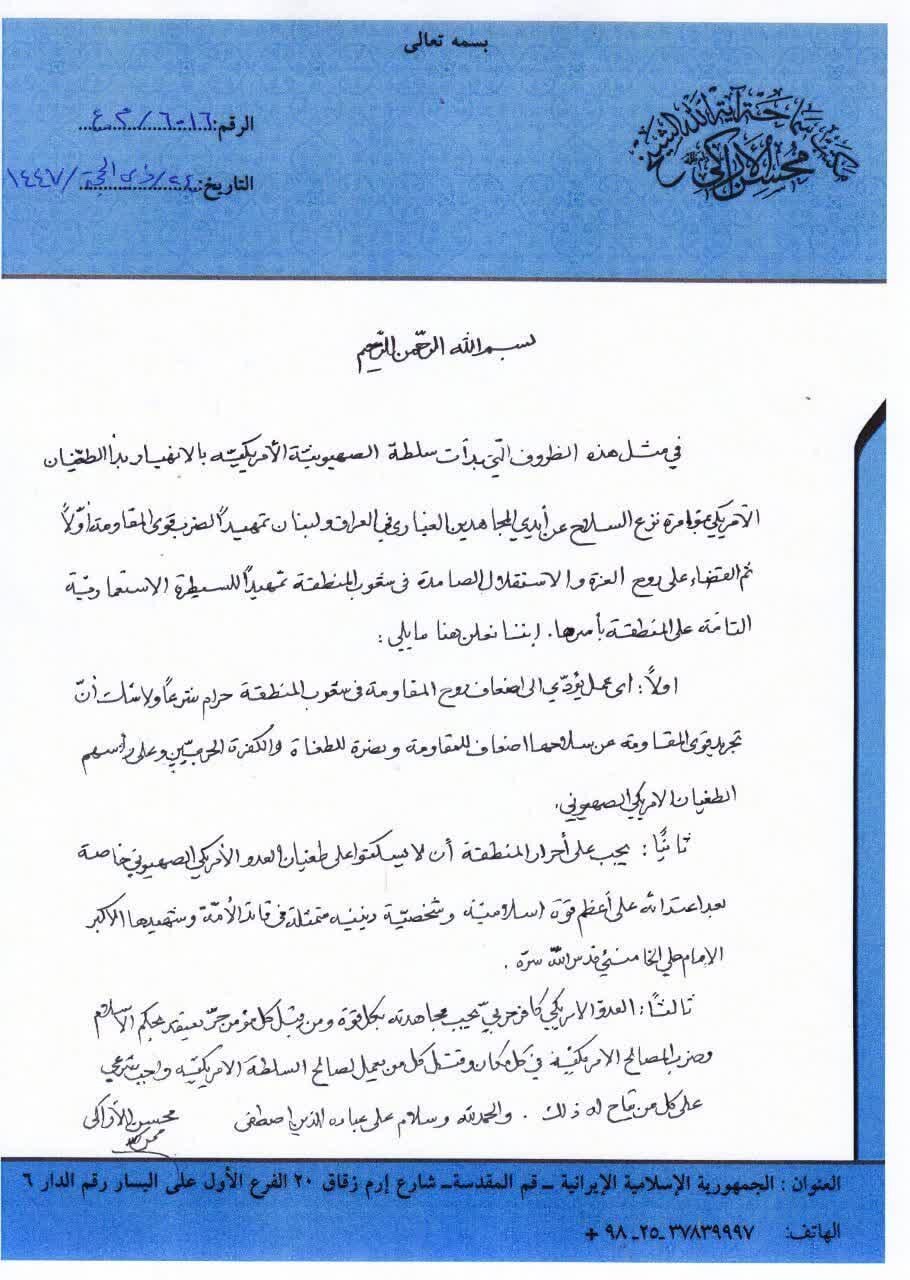 بسمه تعالى
مكتب سماحة آية الله الشيخ
محسن الأراكي
الرقم:
التاريخ: ٢٤/ذي الحجة/١٤٤٧
بسم الله الرحمن الرحيم
في مثل هذه الظروف التي بدأت سلطة الصهيونيّة الأمريكيّة بالانهيار بدأ الطغيان
الأمريكي بمؤامرة نزع السلاح عن أيدي المجاهدين الغيارى في العراق ولبنان تمهيداً لضرب قوى المقاومة أوّلاً
ثم القضاء على روح العزة والاستقلال الصامدة في شعوب المنطقة تمهيداً للسيطرة الاستعماريّة
التامّة على المنطقة بأسرها. إننا نعلن هنا ما يلي:
اولاً: اى عمل يؤدّي الى اضعاف روح المقاومة في شعوب المنطقة حرام شرعاً ولا شك أنّ
تجريد قوى المقاومة عن سلاحها اضعاف للمقاومة ونصرة للطغاة والكفرة الحربيّين وعلى رأسهم
الطغيان الامريكي الصهيوني.
ثانيًا: يجب على أحرار المنطقة أن لا يسكتوا على طغيان العدو الأمريكي الصهيوني خاصة
بعد اعتدائه على أعظم قوة اسلاميّة وشخصيّة دينيه متمثلة في قائد الأمّة وشهيدها الاكبر
الامام علي الخامنئي قدس اللّه سرّه.
ثالثًا: العدو الامريكي كافر حربي يجب مجاهدته بكل قوة ومن قبل كل مؤمن حرّ يعتقد بحكم الاسلام
وضرب المصالح الامريكيّة في كل مكان وقتل كل من يعمل لصالح السلطة الامريكيّه واجب شرعي
على كل من تتاح له ذلك. والحمدلله وسلام على عباده الذين اصطفى
محسن الأراكي
العنوان : الجمهورية الإسلامية الإيرانية ـ قم المقدسة ـ شارع إرم زقاق ٢٠ الفرع الأول على اليسار رقم الدار ٦
الهاتف: ٣٧٨٣٩٩٩٧ ـ ٢٥ ـ ٩٨ +